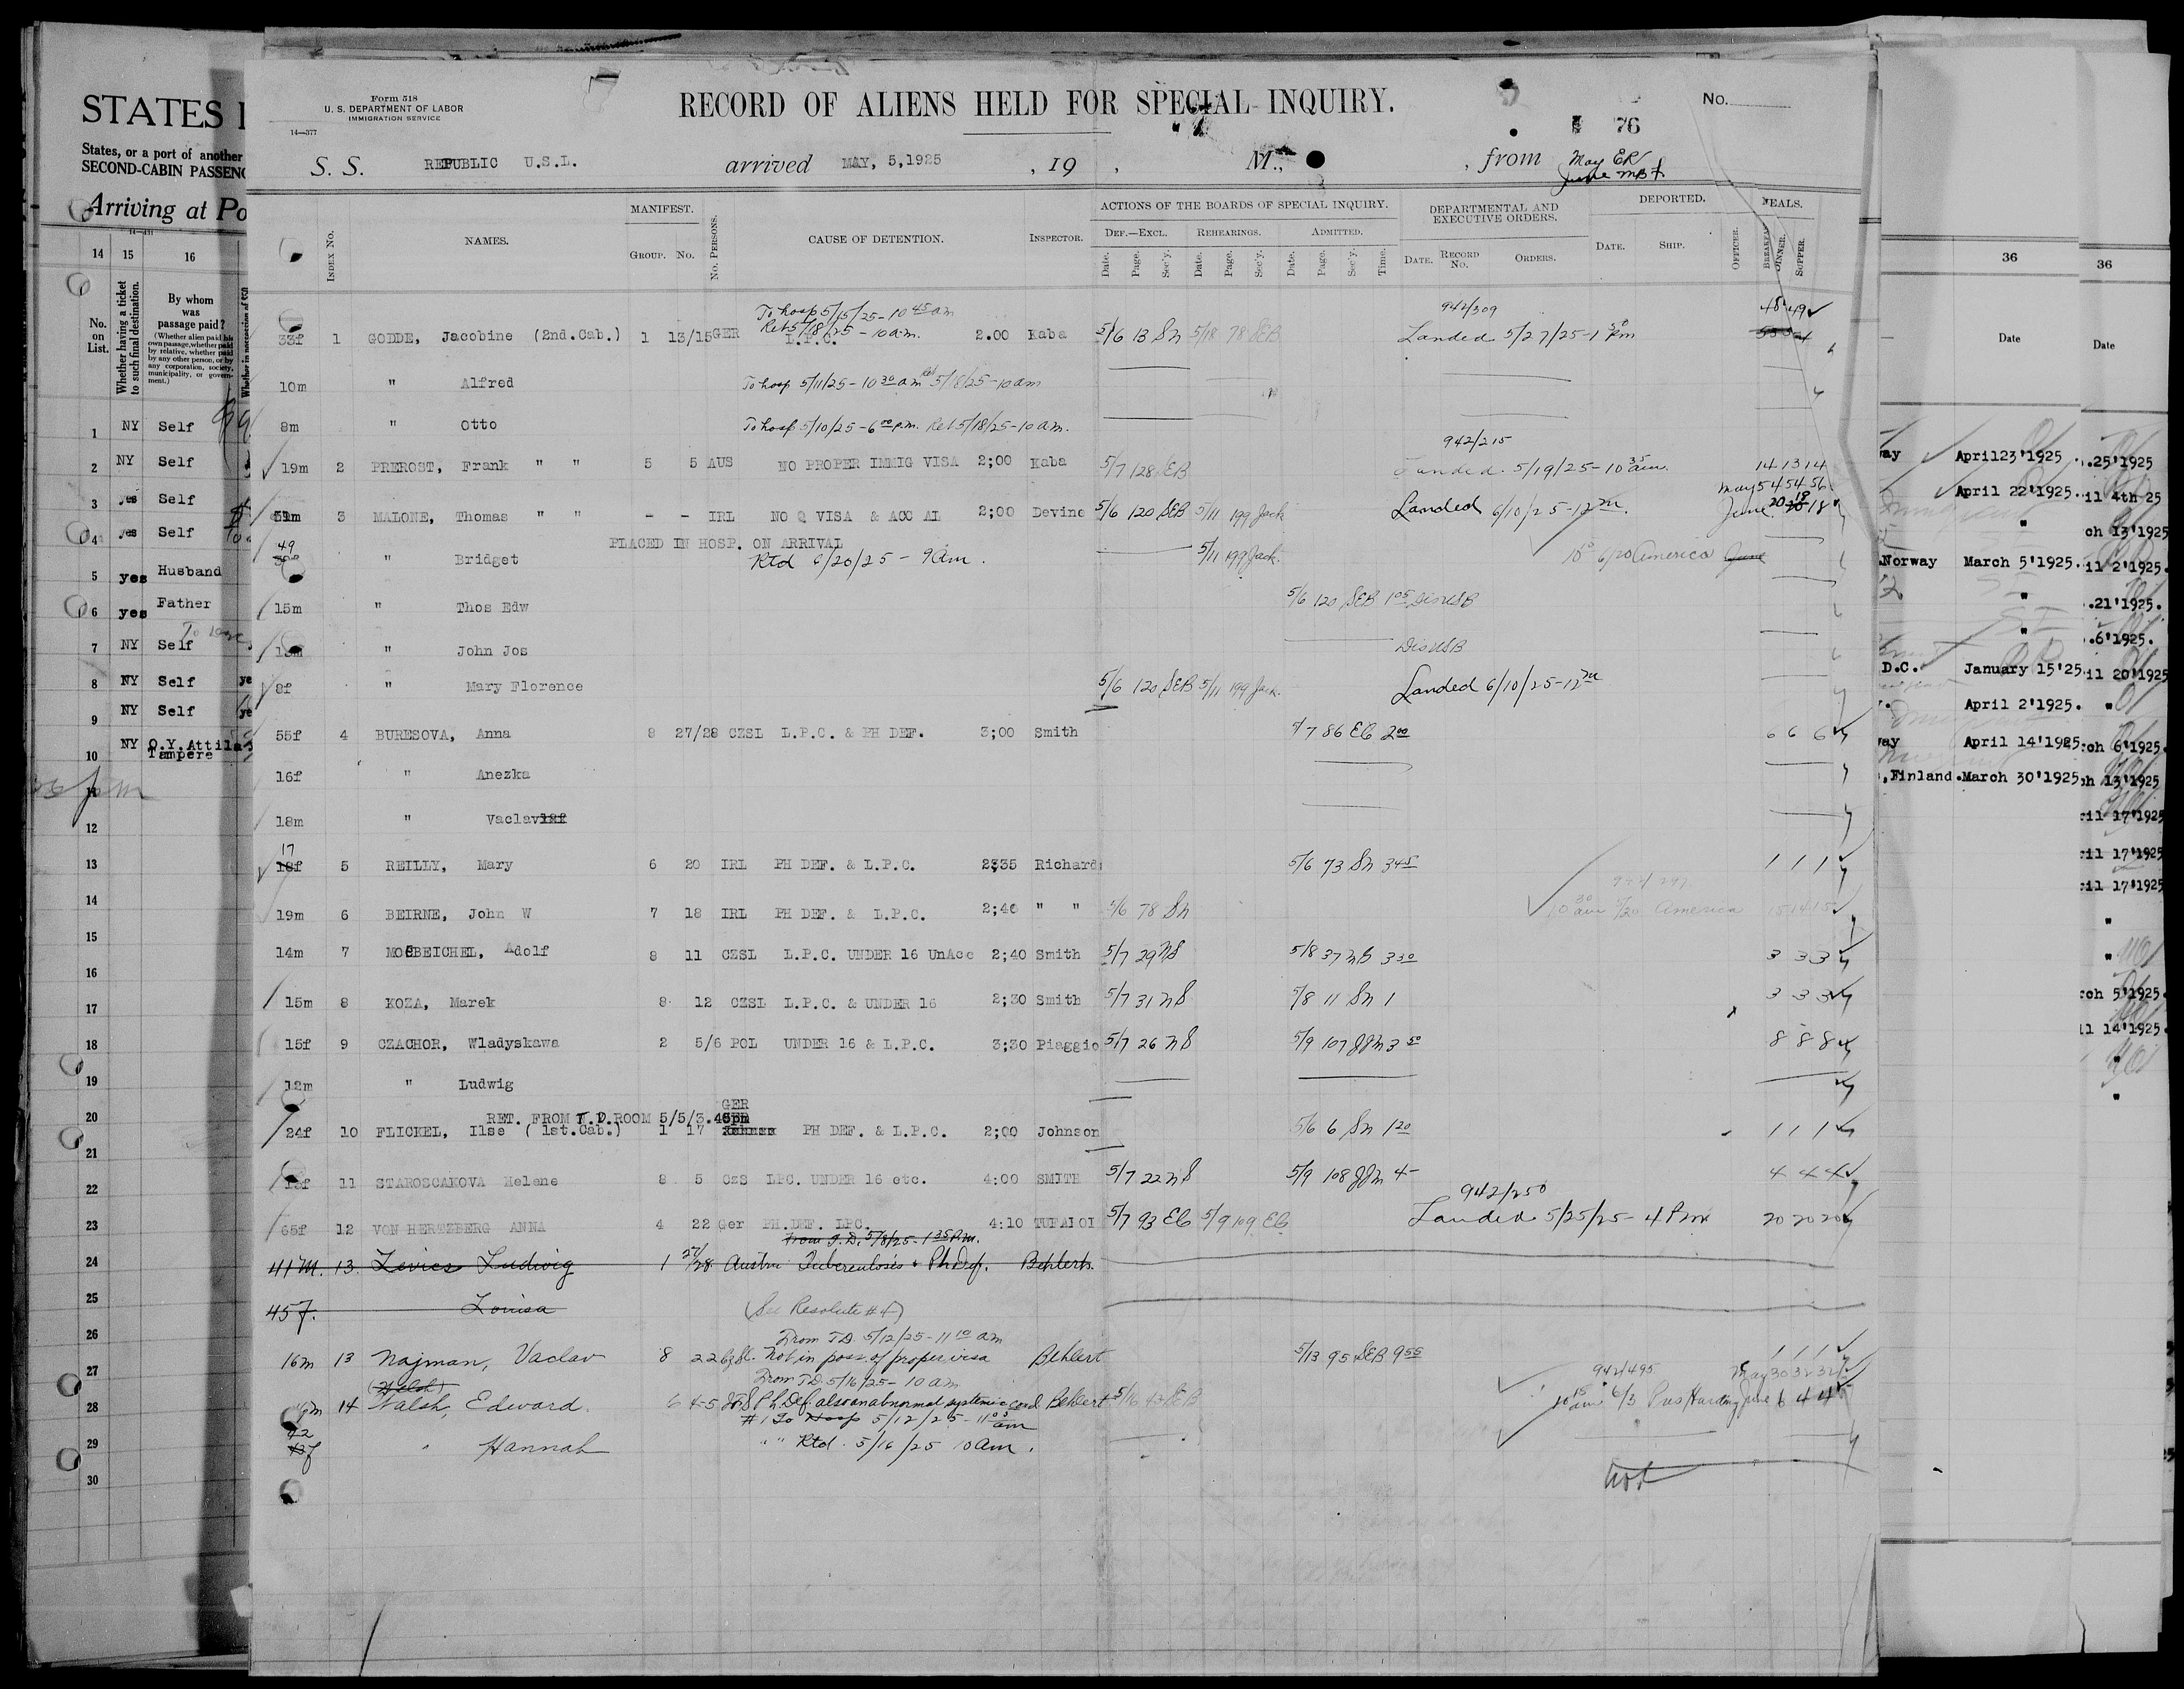 STATES
States, or a port of another
SECOND-CABIN PASSENG
Arriving at Po
14 15 16
No. on List.
Whether having a ticket to such final destination.
By whom was passage paid?
(Whether alien paid his own passage, whether paid by relative, whether paid by any other person, or by any corporation, society, municipality, or government.)
1 NY Self
2 NY Self
3 yes Self
4 yes Self
5 yes Husband
6 yes Father
7 NY Self
8 NY Self
9 NY Self
10 NY O.Y.Attila
Tampere
11
12
13
14
15
16
17
18
19
20
21
22
23
24
25
26
27
28
29
30
Form 518
U. S. DEPARTMENT OF LABOR
IMMIGRATION SERVICE
14—377
RECORD OF ALIENS HELD FOR SPECIAL INQUIRY.
No.
76
S. S. REPUBLIC U.S.L. arrived MAY, 5,1925 , 19 , M., , from May ER
June MB
INDEX NO. NAMES. MANIFEST. GROUP. NO. NO. PERSONS. CAUSE OF DETENTION. INSPECTOR.
ACTIONS OF THE BOARDS OF SPECIAL INQUIRY.
DEF.—EXCL. REHEARINGS. ADMITTED.
Date. Page. Sec'y. Date. Page. Sec'y. Date. Page. Sec'y. Time.
DEPARTMENTAL AND EXECUTIVE ORDERS.
DATE. RECORD NO. ORDERS.
DEPORTED.
DATE. SHIP. OFFICER.
MEALS.
BREAKFAST. DINNER. SUPPER.
To hosp 5/15/25-10 45 am 942/309
Ret 5/18/25 - 10 a.m.
33f 1 GODDE, Jacobine (2nd.Cab.) 1 13/15 GER L.P.C. 2.00 Kaba 5/6 13 Sn 5/18 78 SEB Landed 5/27/25-1 pm
10m " Alfred To hosp 5/11/25-10 30 am Ret 5/18/25-10am
8m " Otto To hosp 5/10/25-6 00 p.m. Ret 5/18/25-10 a.m.
942/215
19m 2 PREROST, Frank " " 5 5 AUS NO PROPER IMMIG VISA 2;00 Kaba 5/7 128 EB Landed 5/19/25-10 35 am. 14 13 14
May 54 54 56
3 MALONE, Thomas " " - - IRL NO Q VISA & ACC AL 2;00 Devine 5/6 120 SEB 5/11 199 Jack Landed 6/10/25-12 m. June 20 18 18
PLACED IN HOSP. ON ARRIVAL
49 " Bridget Rtd 6/20/25 - 9 am. 5/11 199 Jack. 6/20 America June
15m " Thos Edw 5/6 120 SEB 1 05 DisUSB
" John Jos DisUSB
8f " Mary Florence 5/6 120 SEB 5/11 199 Jack. Landed 6/10/25-12 m
55f 4 BURESOVA, Anna 8 27/28 CZSL L.P.C. & PH DEF. 3;00 Smith 5/7 86 EC 2 00 6 6 6
16f " Anezka
18m " Vaclav 18f
17
18f 5 REILLY, Mary 6 20 IRL PH DEF. & L.P.C. 2;35 Richards 5/6 73 Sn 3 45 1 1 1
19m 6 BEIRNE, John W 7 18 IRL PH DEF. & L.P.C. 2;40 " " 5/6 78 Sn 10 30 am America 15 14 15
14m 7 MOSBEICHEL, Adolf 8 11 CZSL L.P.C. UNDER 16 UnAcc 2;40 Smith 5/7 29 NS 5/8 37 3 30 3 3 3
15m 8 KOZA, Marek 8 12 CZSL L.P.C. & UNDER 16 2;30 Smith 5/7 31 NS 5/8 11 Sn 1 3 3 3
15f 9 CZACHOR, Wladyskawa 2 5/6 POL UNDER 16 & L.P.C. 3;30 Piaggio 5/7 26 NS 5/9 107 JJM 3 50 8 8 8
12m " Ludwig
RET. FROM T.D.ROOM 5/5/3.45pm GER
24f 10 FLICKEL, Ilse ( 1st.Cab.) 1 17 PH DEF. & L.P.C. 2;00 Johnson 5/6 6 Sn 1 20 1 1 1
11 STAROSCAKOVA Helene 8 5 CzS LPC. UNDER 16 etc. 4:00 SMITH 5/7 22 NS 5/9 108 JJM 4- 4 4 4
942/250
65f 12 VON HERTZBERG ANNA 4 22 Ger PH.DEF. LPC. 4:10 TUFAIOI 5/7 93 EC 5/9 109 EC Landed 5/25/25- 4 Pm 20 20 20
from T.D. 5/8/25-1 35 P.M.
41M. 13 Levics Ludwig 1 27/28 Austri Tuberculosis & Ph Def. Behlert.
45f. Louisa (See Resolute #4)
From TD. 5/12/25-11 10 am
16m 13 Najman, Vaclav 8 22 CzSl. Not in poss. of proper visa Behlert 5/13 95 SEB 9 55 1 1 1
(Welsh) From T.D. 5/16/25-10 am 942/495 May 30 32 32
14 Walsh, Edward. 6 4-5 Ph. Def. also an abnormal systemic cond Behlert 5/16 43 SEB 10 15 am 6/3 Pres Harding June 6 4 4
#1 To Hosp 5/12/25-11 05 am
42 " Hannah " " Rtd. 5/16/25 10 am.
not
36
Date
way April23'1925
April 22'1925.
"
Norway March 5'1925.
"
"
D.C. January 15'25
April 2'1925.
way April 14'1925
,Finland.March 30'1925
36
Date
.25'1925
il 4th 25
ch 13'1925
il 2'1925.
.21'1925.
.6'1925.
il 20'1925
"
rch 6'1925.
ch 13'1925
ril 17'1925
ril 17'1925
ril 17'1925
"
"
rch 5'1925.
il 14'1925.
"
"